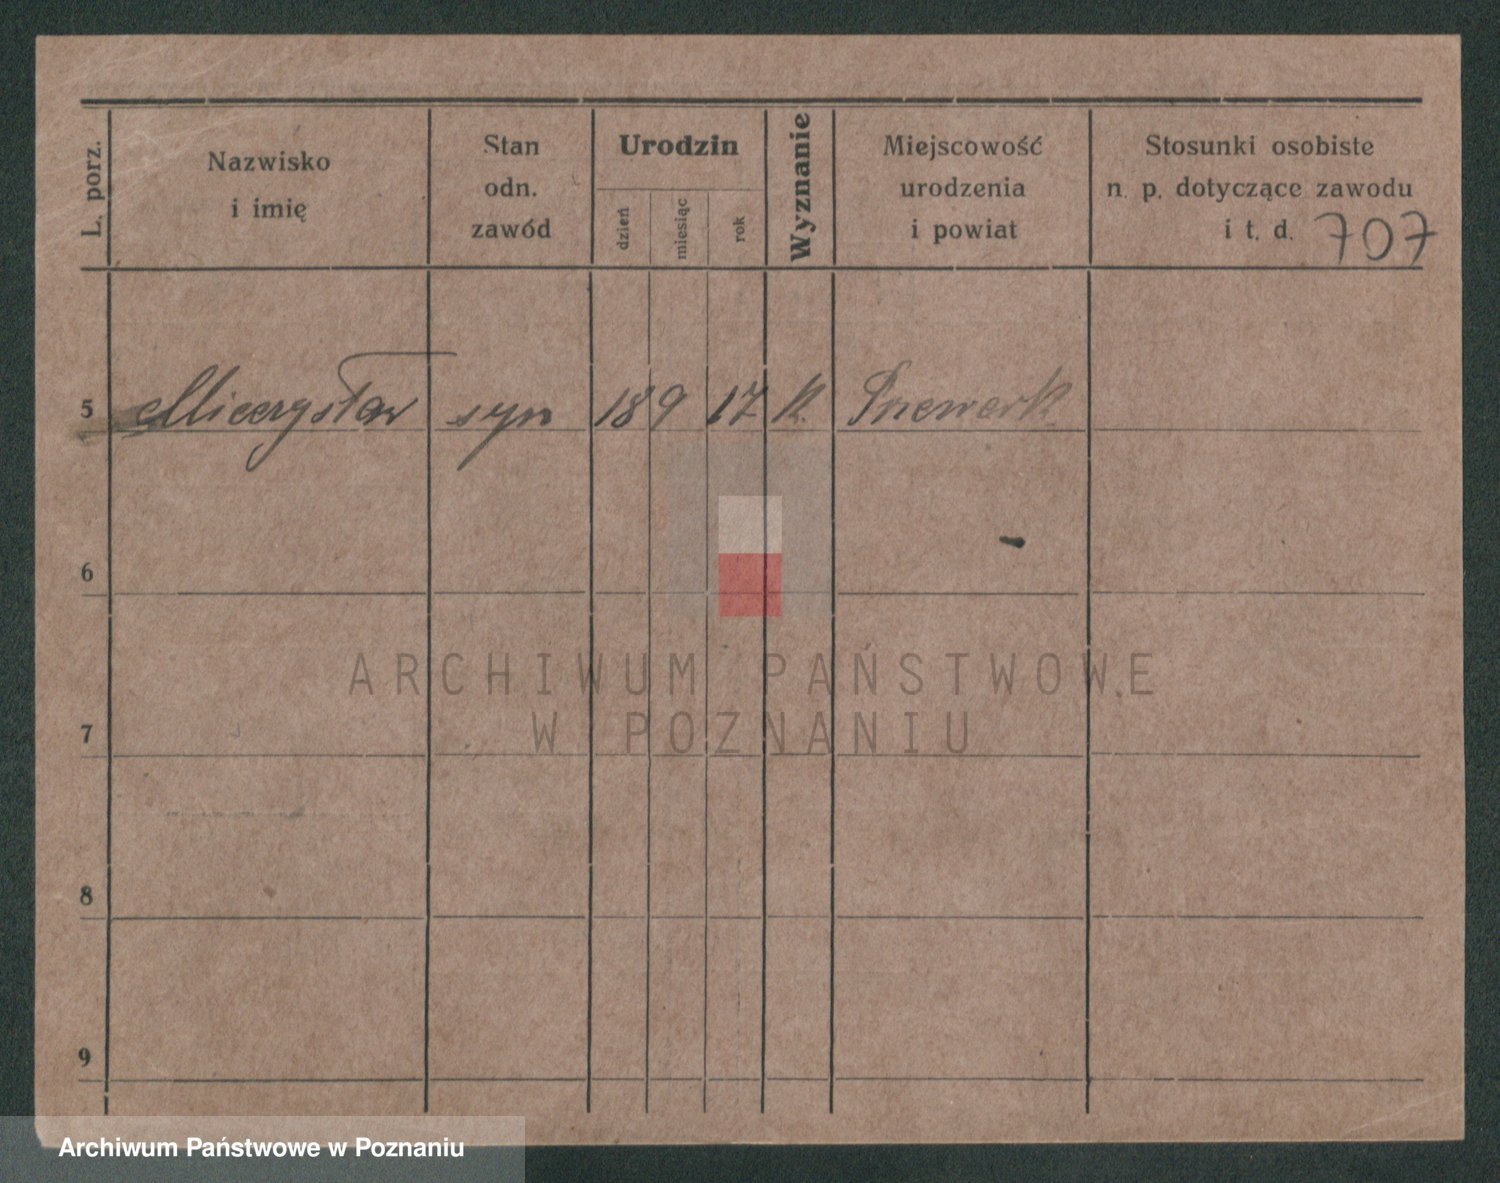 L. porz.
Nazwisko
i imię
Stan
odn.
zawód
Urodzin
dzień
miesiąc
rok
Wyznanie
Miejscowość
urodzenia
i powiat
Stosunki osobiste
n. p. dotyczące zawodu
i t. d. 707
5 Mieczysław syn 18 9 17 k.
6
7
8
9
ARCHIWUM PAŃSTWOWE
W POZNANIU
Archiwum Państwowe w Poznaniu